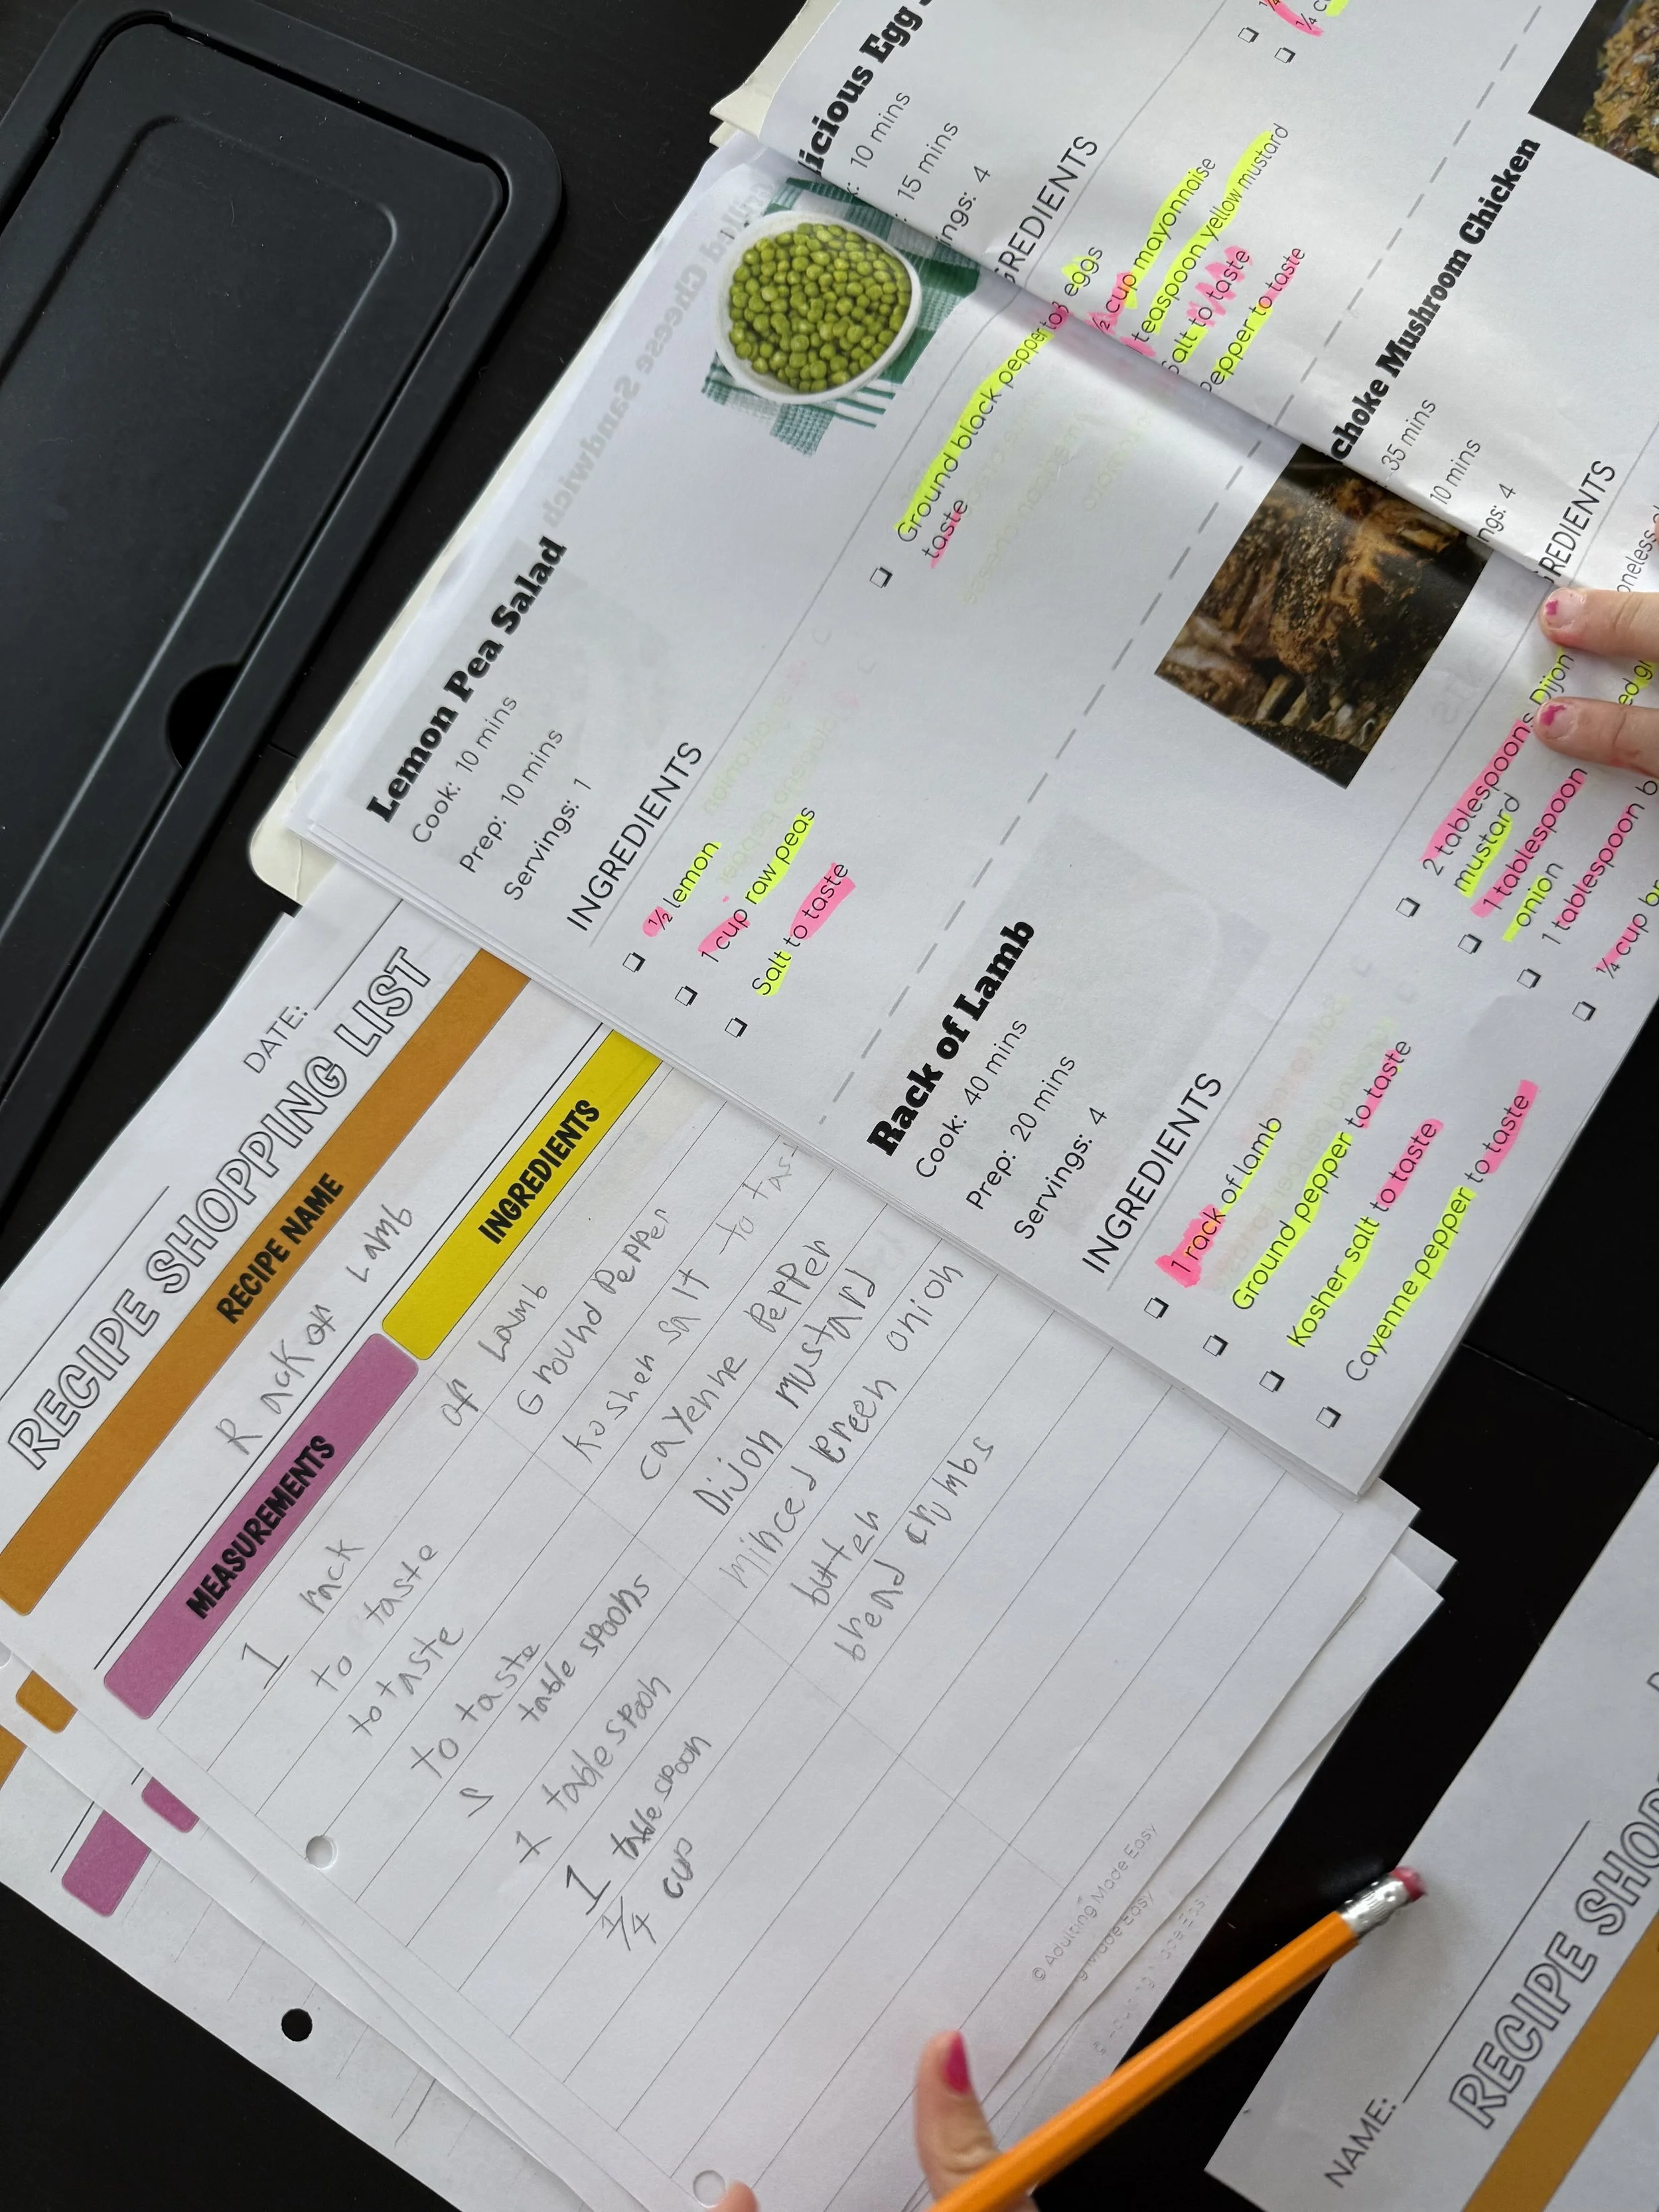 DATE:
RECIPE SHOPPING LIST
RECIPE NAME
Rack of Lamb
MEASUREMENTS INGREDIENTS
1 rack of Lamb
to taste Ground Pepper
to taste Kosher salt to tas
to taste cayenne Pepper
tablespoons Dijon mustard
1 tablespoon minced green onion
1 tablespoon butter
1/4 cup bread crumbs
© Adulting Made Easy
g Made Easy
Lemon Pea Salad
Cook: 10 mins
Prep: 10 mins
Servings: 1
INGREDIENTS
½ lemon
1 cup raw peas
Salt to taste
Ground black pepper to
taste
Grilled Cheese Sandwich
Rack of Lamb
Cook: 40 mins
Prep: 20 mins
Servings: 4
INGREDIENTS
1 rack of lamb
Ground pepper to taste
Kosher salt to taste
Cayenne pepper to taste
2 tablespoons Dijon
mustard
1 tablespoon
onion
1 tablespoon b
¼ cup br
licious Egg
: 10 mins
: 15 mins
ings: 4
GREDIENTS
eggs
½ cup mayonnaise
teaspoon yellow mustard
Salt to taste
Pepper to taste
¼ c
choke Mushroom Chicken
35 mins
10 mins
ngs: 4
GREDIENTS
oneless
NAME:
RECIPE SHOP